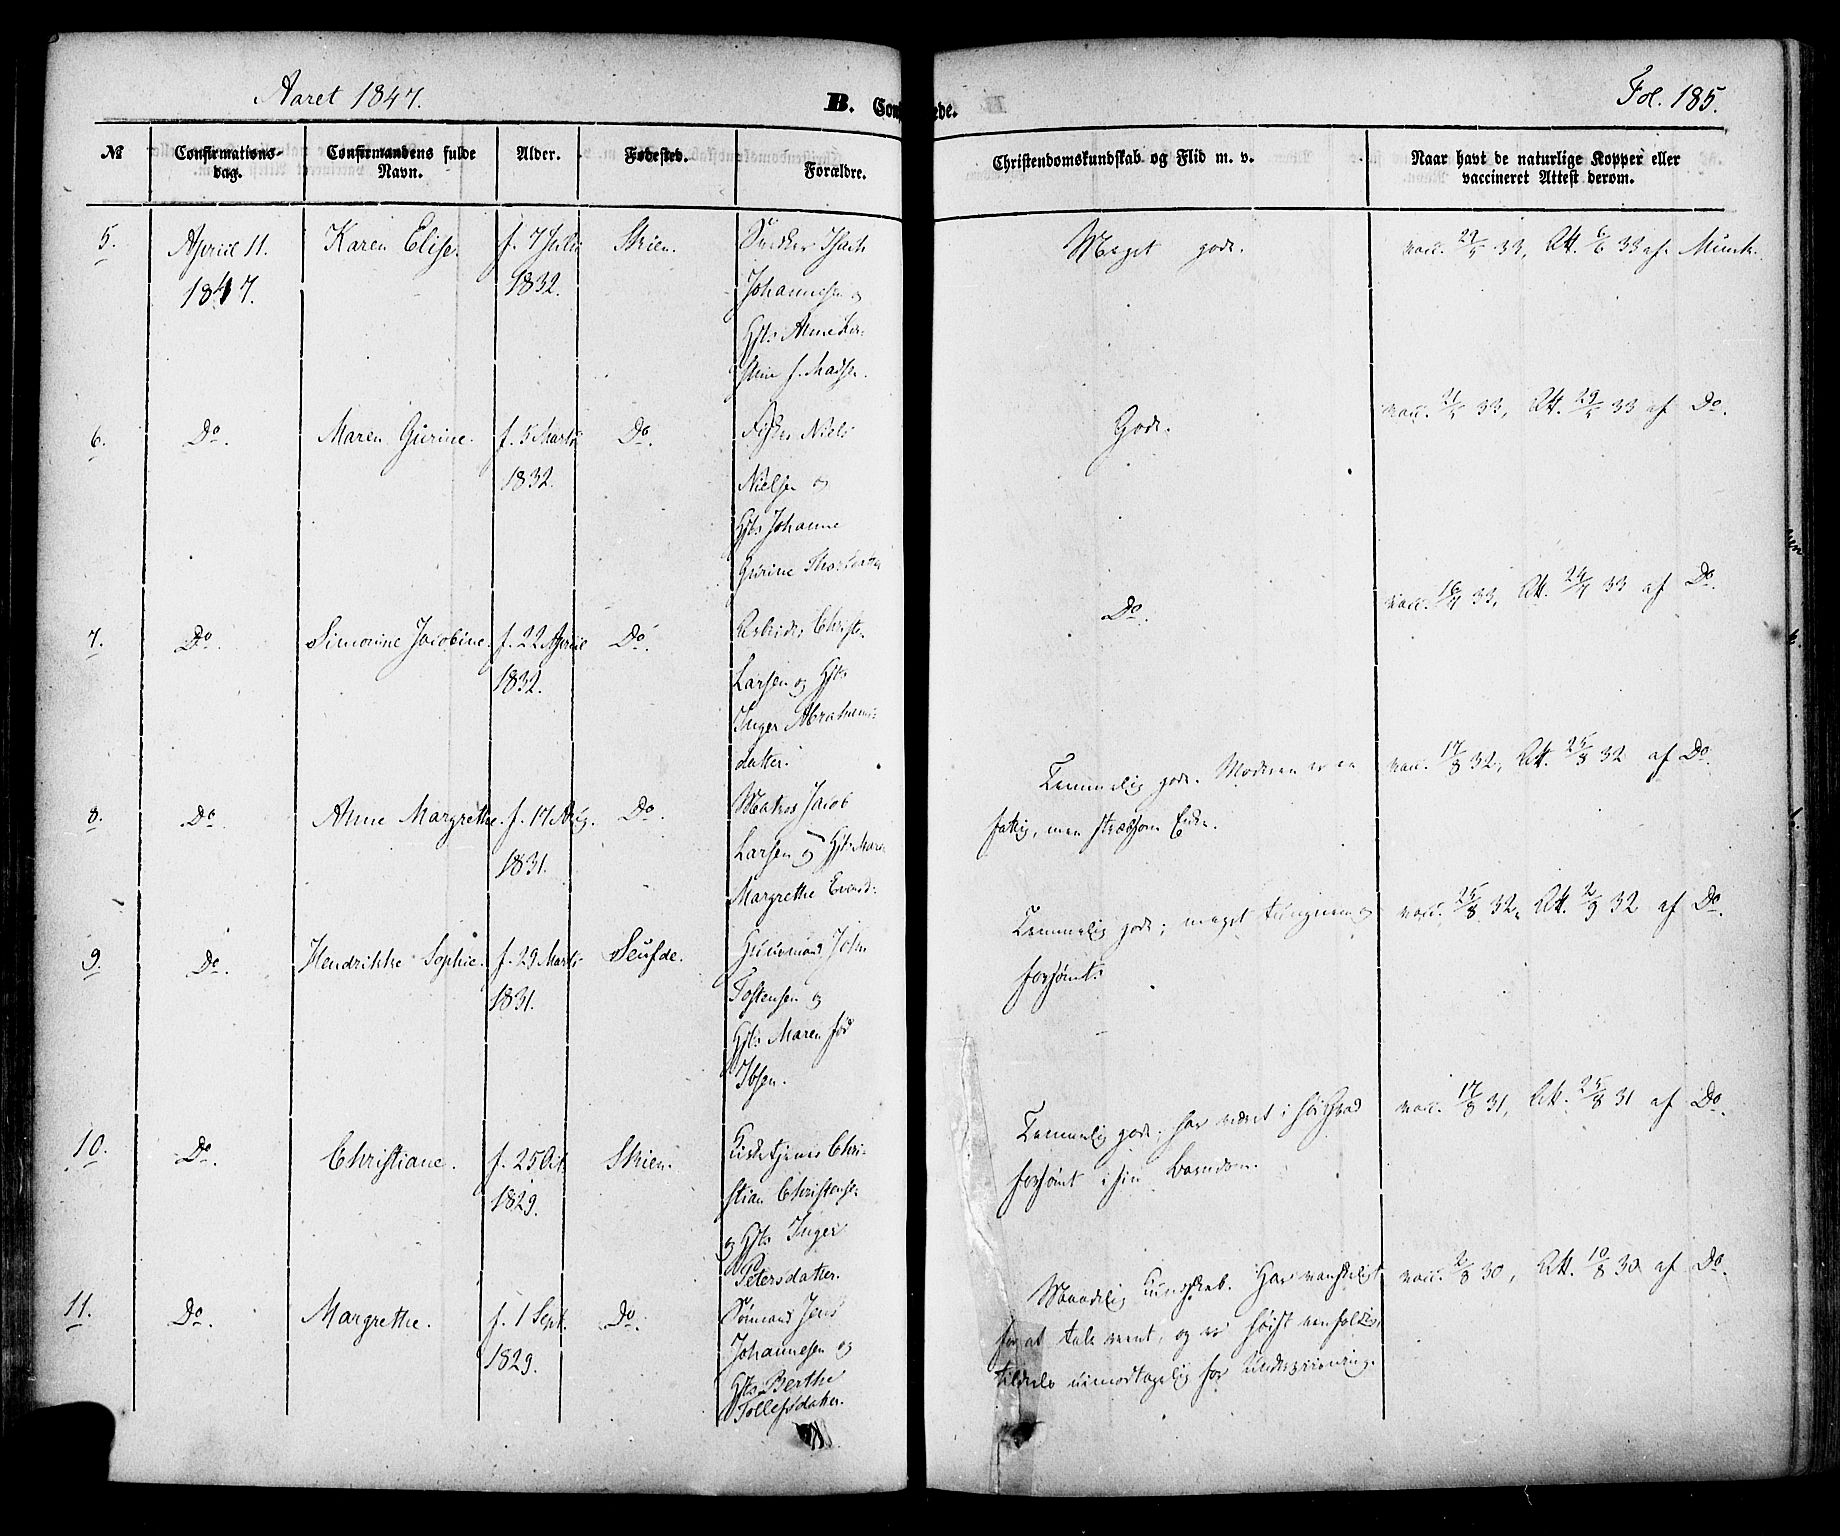 Aaret 1847.
B. Con
ede.
Fol. 185.
№
Confirmations-
dag.
Confirmandens fulde
Navn.
Alder.
Fødested.
Forældre.
Christendomskundskab og Flid m. v.
Naar havt de naturlige Kopper eller
vaccineret Attest derom.
5.
April 11.
1847.
Karen Elise.
f. 7 Juli
1832.
Skien.
Snedker Isach
Johannesen og
Hst. Anne Kir-
stine f. Madsen.
Meget god.
vacc. 29/5 33, Att. 6/6 33 af Munk.
6.
Do.
Maren Gurine.
f. 5 Marts
1832.
Do.
Fisker Niels
Nielsen og
Hst. Johanne
Gurine
God.
vacc. 21/5 33, Att. 29/5 33 af Do.
7.
Do.
Simonine Jacobine.
f. 22 April
1832.
Do.
Arbeider Christe.
Larsen og Hst.
Inger Abrahams-
datter.
Do.
vacc. 16/4 33, Att. 24/4 33 af Do.
8.
Do.
Anne Margrethe.
f. 17 Aug.
1831.
Do.
Matros Jacob
Larsen og Hst. Maren
Margrethe
Temmelig god. Moderen er en
fattig, men stræbsom Enke.
vacc. 17/8 32, Att. 25/8 32 af Do.
9.
Do.
Hendrikke Sophie.
f. 29 Marts
1831.
Seufde.
Huusmand John
Tostensen og
Hst. Maren fød
Ibsen.
Temmelig god; meget tungnem og
forsømt.
vacc. 25/8 32, Att. 2/9 32 af Do.
10.
Do.
Christiane.
f. 25 Oct.
1829.
Skien.
Kirketjener Chri-
stian Christensen
og Hst. Inger
Petersdatter.
Temmelig god; har været i høi Grad
forsømt i sin Barndom.
vacc. 17/8 31, Att. 25/8 31 af Do.
11.
Do.
Margrethe.
f. 1 Sept.
1829.
Do.
Sømand Jens
Johannesen og
Hst. Berthe
Tollefsdatter.
Maadelig Kundskab. Har vanskeligt
for at tale reent, og er høist
uimodtagelig for Underviisning.
vacc. 2/8 30, Att. 10/8 30 af Do.